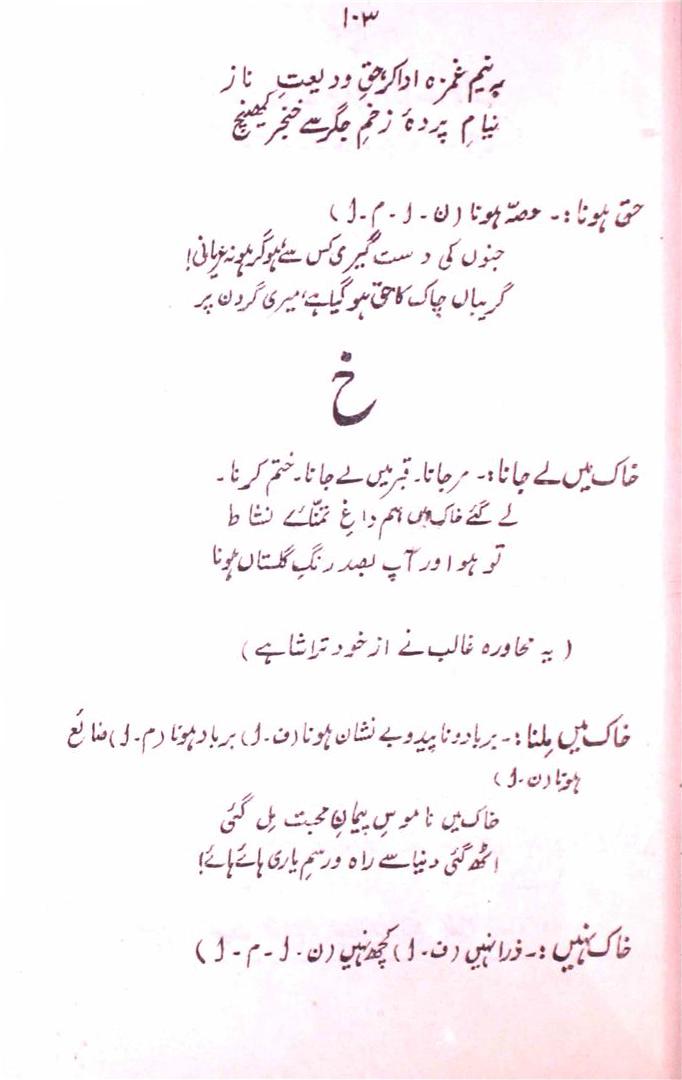 ۱۰۳
بہ نیم غمزہ ادا کر حقِ ودیعتِ ناز
نیامِ پردۂ زخمِ جگر سے خنجر کھینچ
حق ہونا:۔ حصہ ہونا (ن۔ ا۔ م۔ ا)
جنوں کی دست گیری کس سے ہو گر ہو نہ عریانی!
گریباں چاک کا حق ہو گیا ہے، میری گردن پر
خ
خاک میں لے جانا:۔ مر جانا۔ قبر میں لے جانا۔ ختم کرنا۔
لے گئے خاک میں ہم داغِ تمنّائے نشاط
تو ہو اور آپ بصد رنگِ گلستاں ہونا
(یہ محاورہ غالب نے از خود تراشا ہے)
خاک میں مِلنا:۔ برباد و ناپید و بے نشان ہونا (ف۔ ا) برباد ہونا (م۔ ا) ضائع
ہونا (ن۔ ا)
خاک میں ناموسِ پیمانِ محبت مِل گئی
اٹھ گئی دنیا سے راہ و رسمِ یاری ہائے ہائے!
خاک نہیں:۔ ذرا نہیں (ف۔ ا) کچھ نہیں (ن۔ ا۔ م۔ ا)